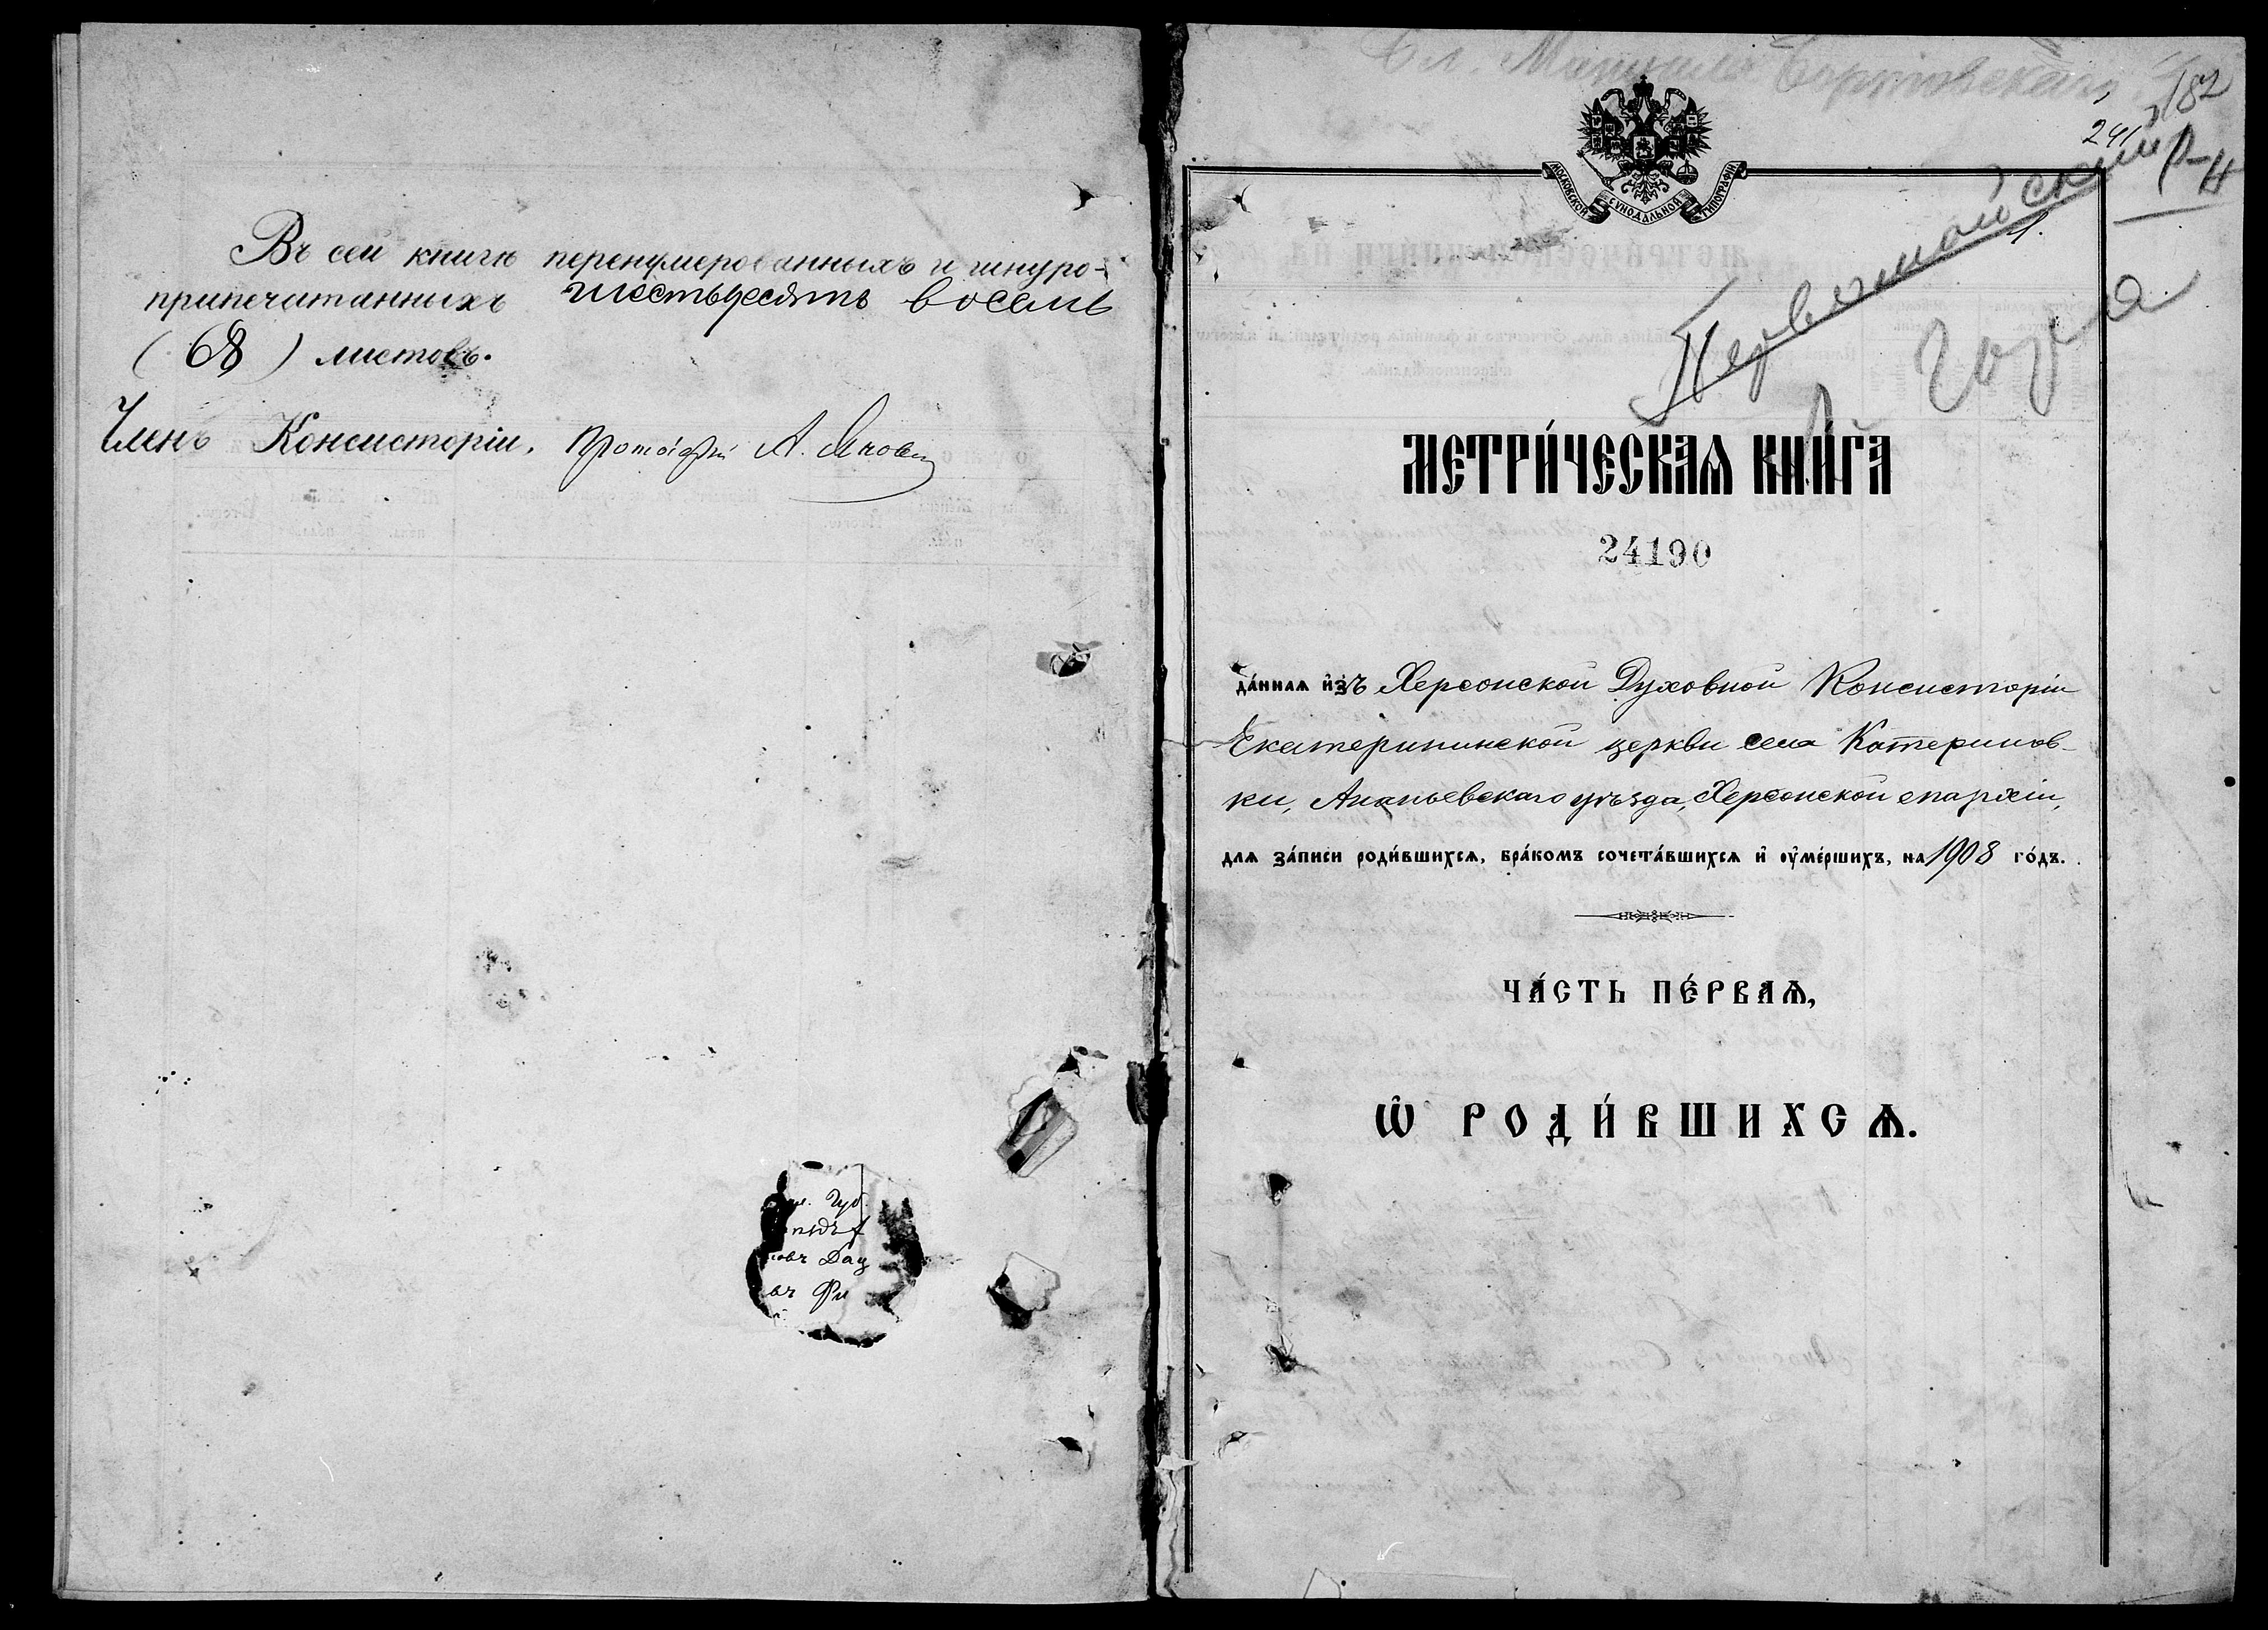 Въ сей книгѣ перенумерованныхъ и шнуро-
припечатанныхъ шестьдесятъ восемь
(68) листовъ.
Членъ Консисторіи, Протоіерей А.
Губ.
Дац
въ Фи
Бл.
182
241
Первомайский р-н
1.
МОСКОВСКОЙ СѴНОДАЛЬНОЙ ТИПОГРАФІИ
МЕТРИ́ЧЕСКАѦ КНИ́ГА
24190
да́ннаѧ и҆зъ Херсонской Духовной Консисторіи
Екатерининской церкви села Катеринов-
ки, Ананьевскаго уѣзда, Херсонской епархіи,
длѧ за́писи роди́вшихсѧ, бра́комъ сочета́вшихсѧ и҆ ᲂу҆ме́ршихъ, на 1908 го́дъ.
ЧА́СТЬ ПЕ́РВАѦ,
Ѡ҆ РОДИ́ВШИХСѦ.